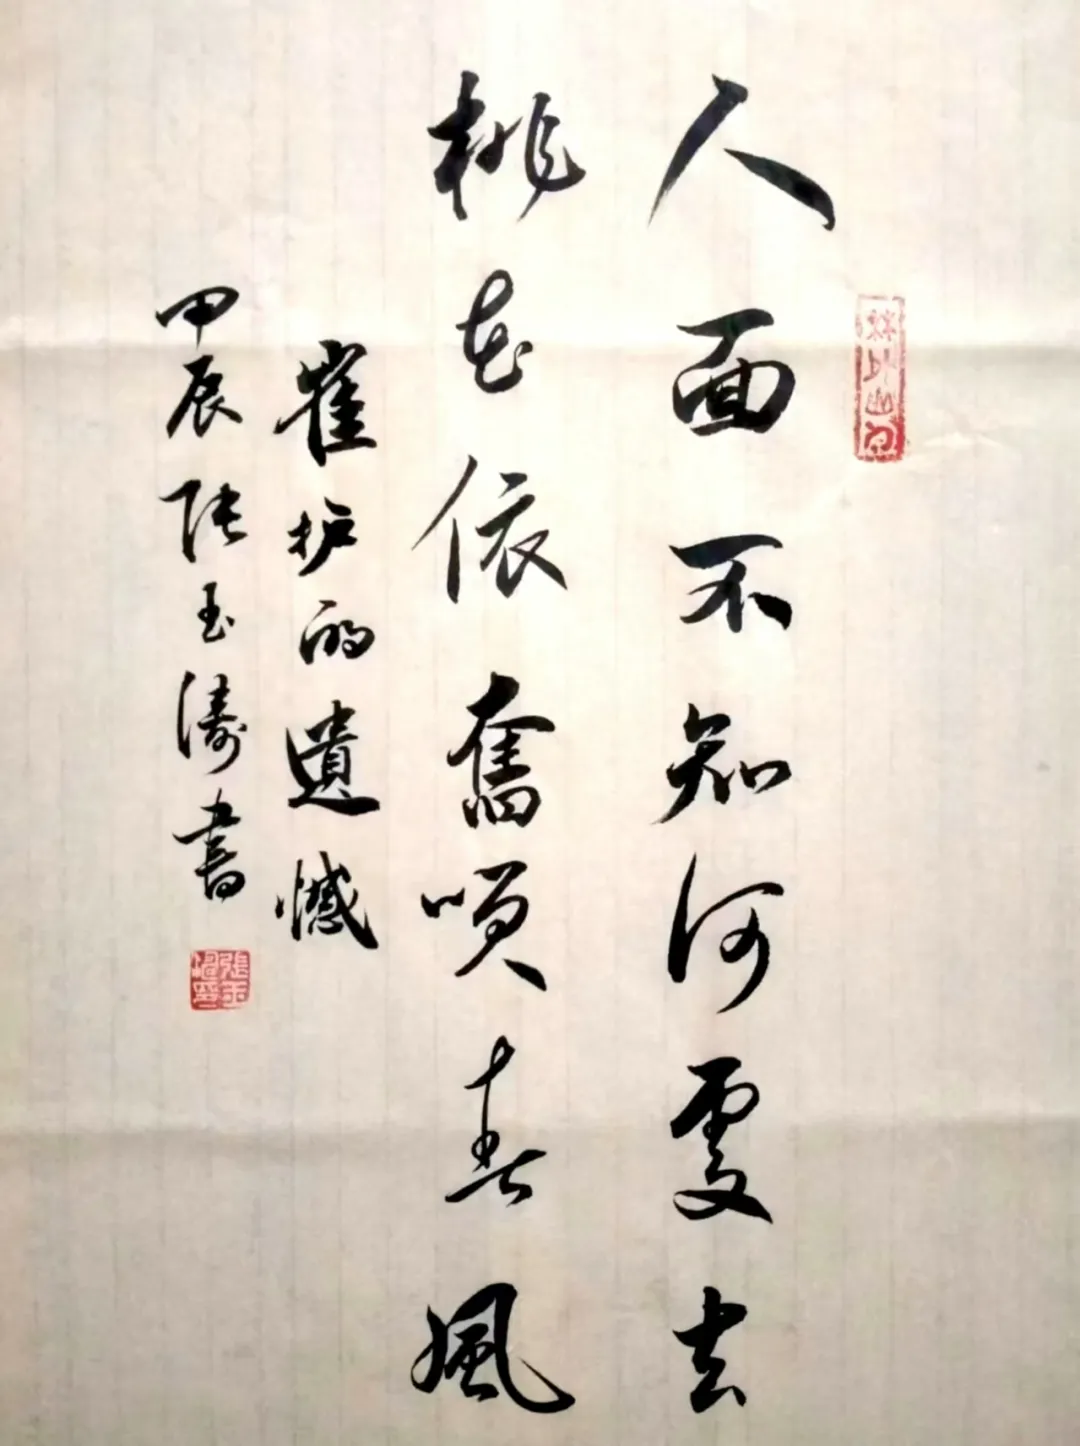 人面不知何處去
桃花依舊唤春風
崔护的遺憾
甲辰張玉濤書